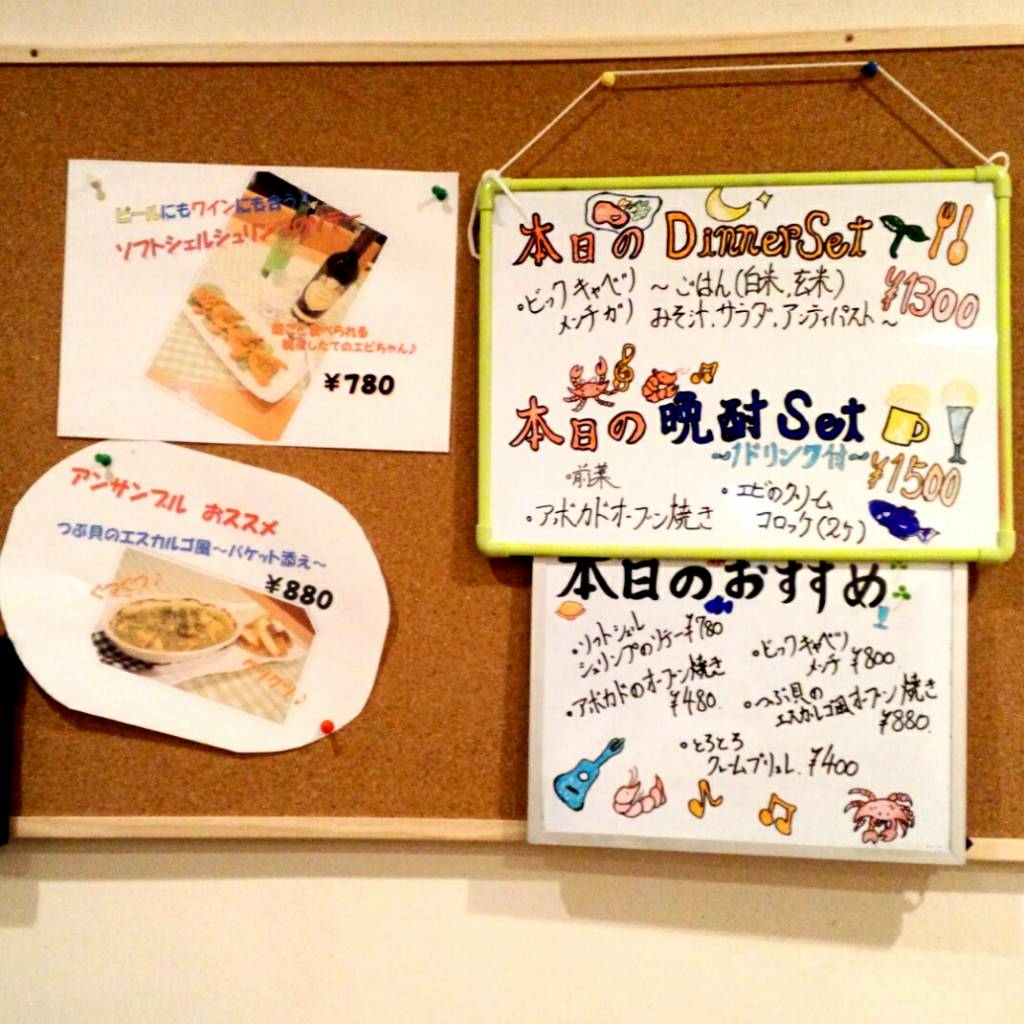 ビールにもワインにも合う!
ソフトシェルシュリンプのソテー
殻ごと食べられる
脱皮したてのエビちゃん♪
¥780
アンサンブル おススメ
つぶ貝のエスカルゴ風～バケット添え～
¥880
ぐつぐつ♪
本日の DinnerSet
・ビックキャベツ
メンチガツ
～ごはん(白米、玄米)
みそ汁、サラダ、アンティパスト～
¥1300
本日の 晩酎 Set
～1ドリンク付～
¥1500
・前菜
・アボカドオーブン焼き
・エビのクリーム
コロッケ(2ケ)
本日のおすすめ
・ソフトシェル
シュリンプのソテー ¥780
・アボカドのオーブン焼き
¥480
・ビックキャベツ
メンチ ¥800
・つぶ貝の
エスカルゴ風オーブン焼き
¥880
・とろとろ
クレームブリュレ ¥400